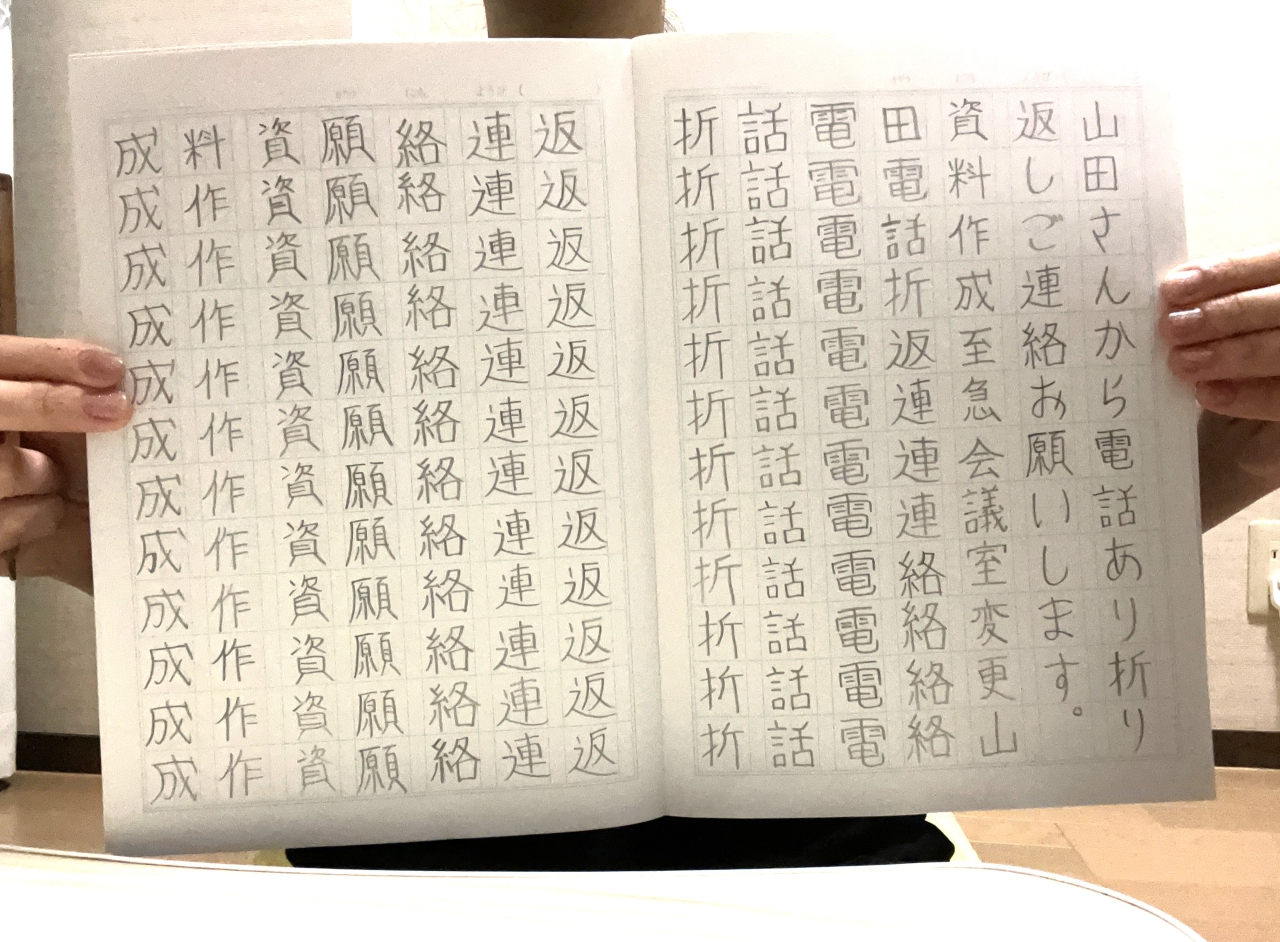 山田さんから電話あり折り
返しご連絡お願いします。
資料作成至急会議室変更山
田電話折返連連連絡絡絡絡
電電電電電電電電電電電電
話話話話話話話話話話話話
折折折折折折折折折折折折
ようび (
返返返返返返返返返返返返
連連連連連連連連連連連連
絡絡絡絡絡絡絡絡絡絡絡絡
願願願願願願願願願願願願
資資資資資資資資資資資資
料作作作作作作作作作作作
成成成成成成成成成成成成